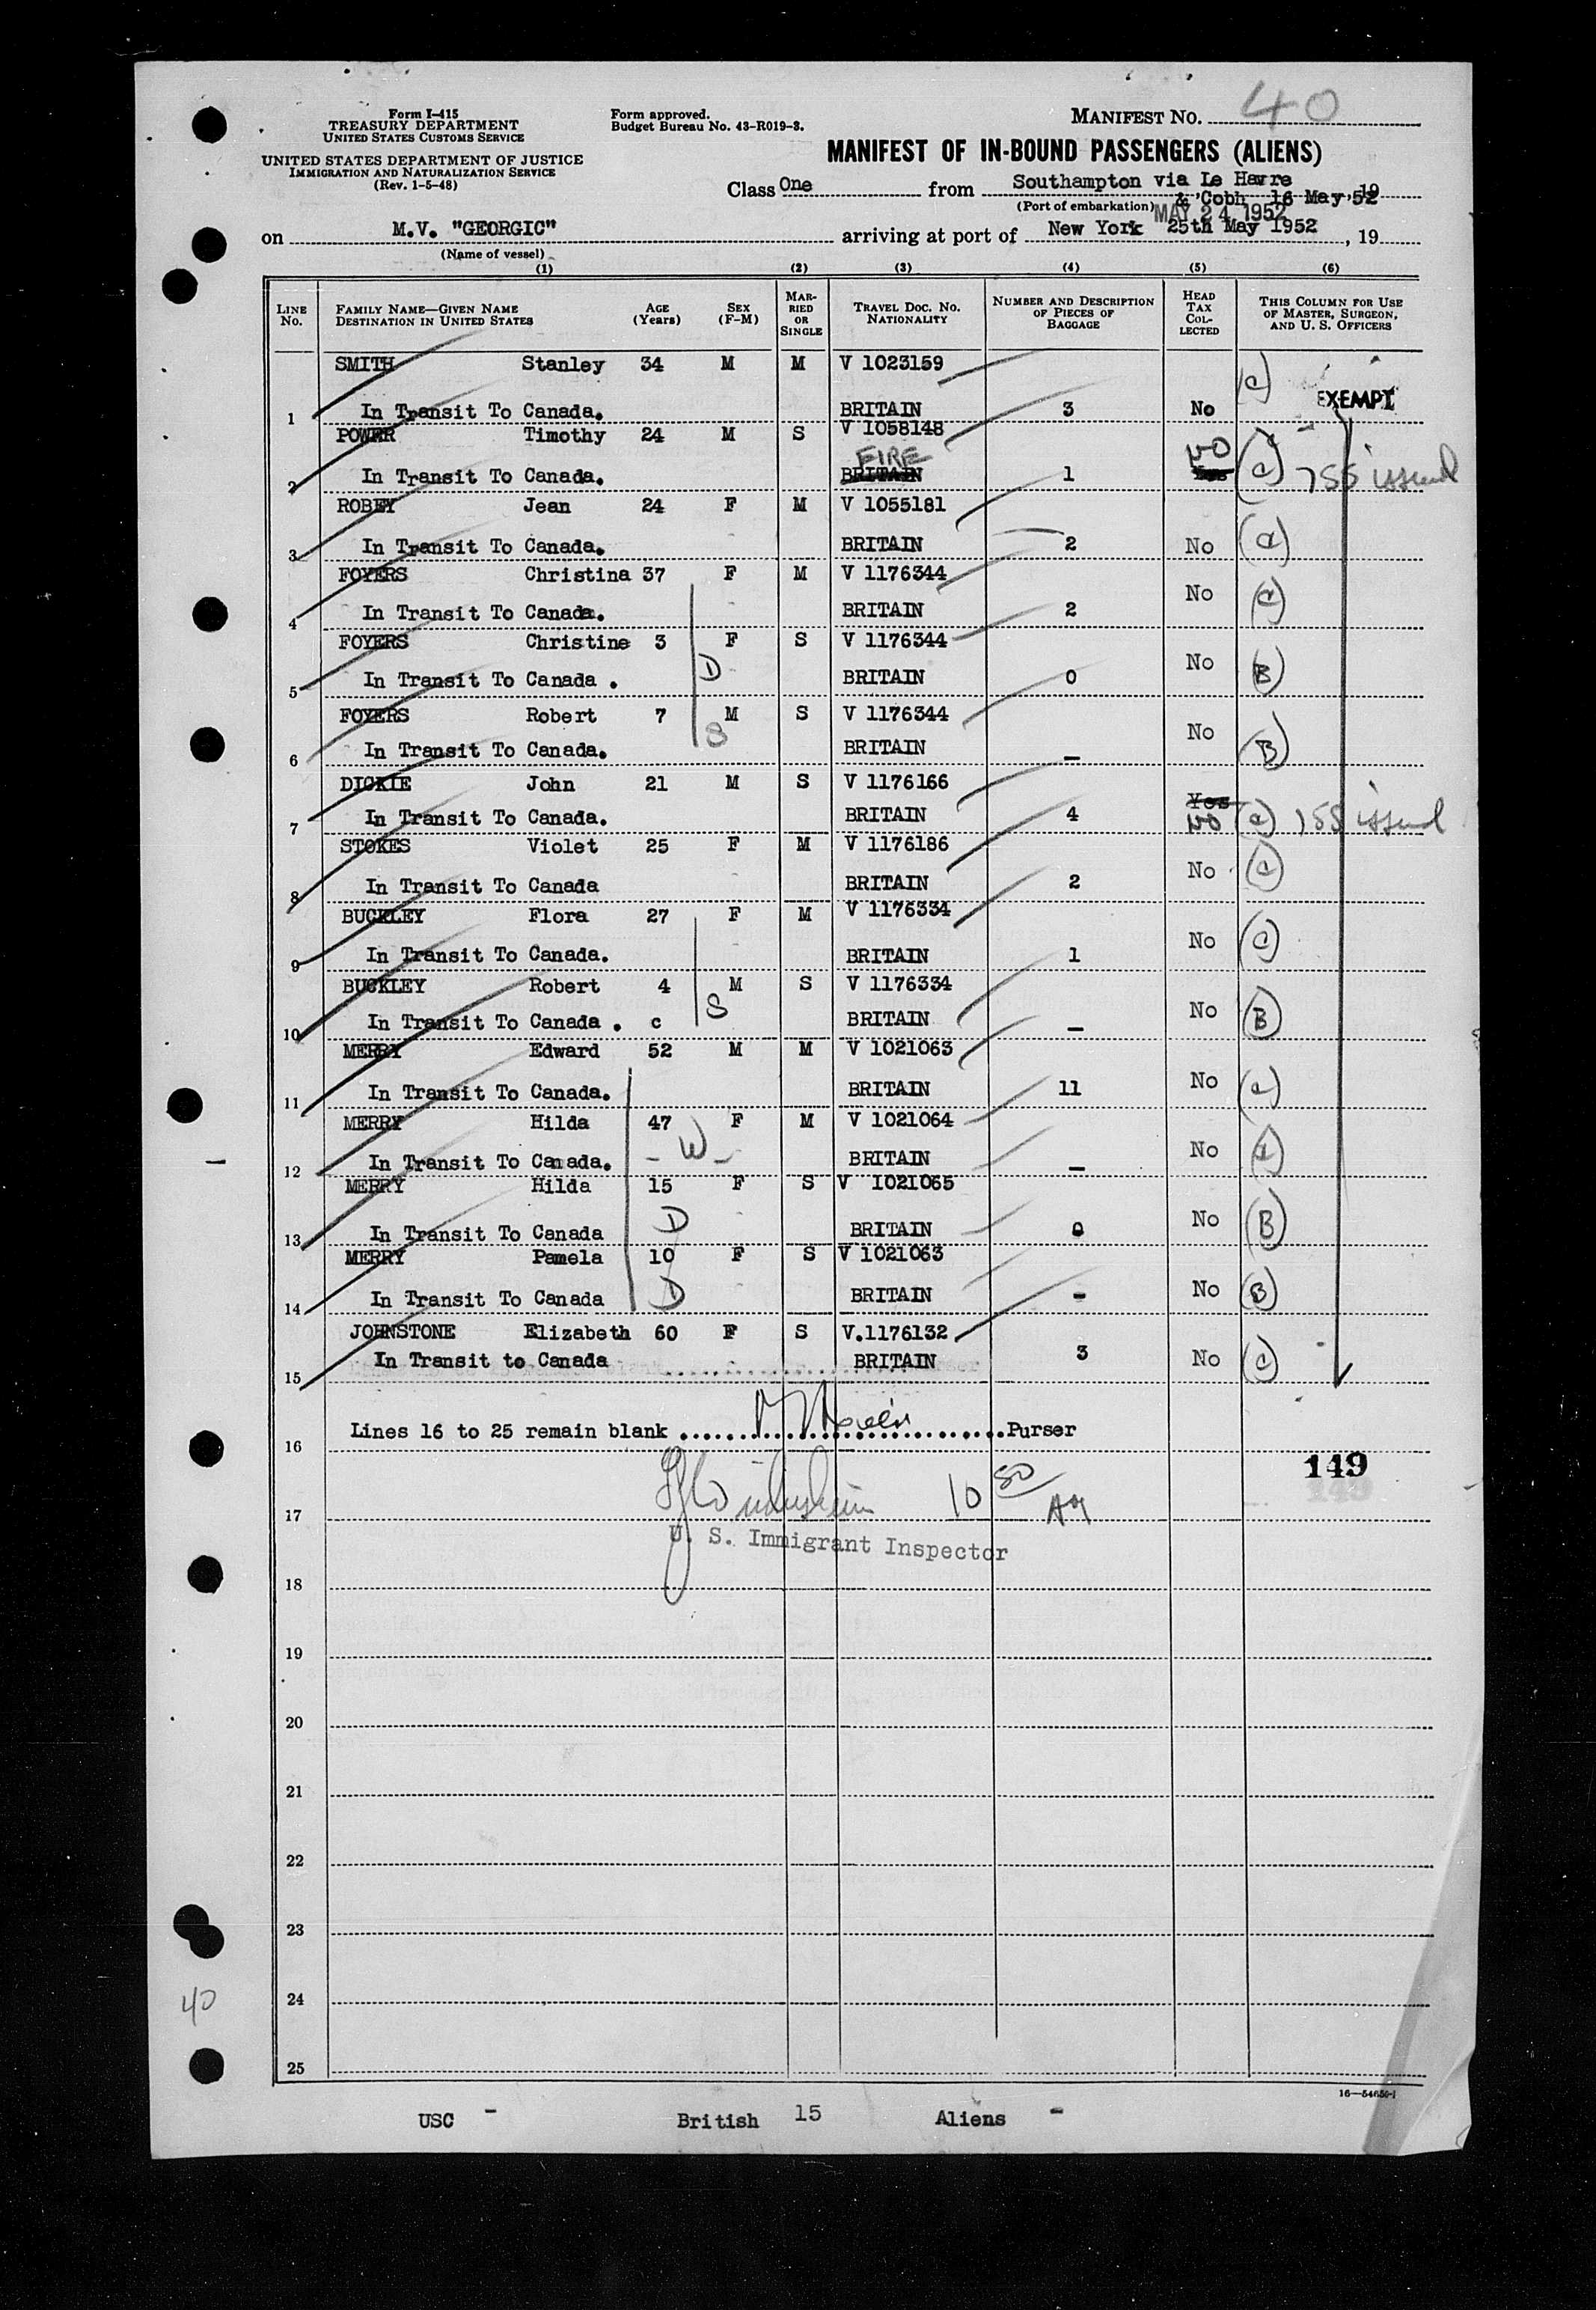 Form I-415
TREASURY DEPARTMENT
UNITED STATES CUSTOMS SERVICE
UNITED STATES DEPARTMENT OF JUSTICE
IMMIGRATION AND NATURALIZATION SERVICE
(Rev. 1-5-48)
Form approved.
Budget Bureau No. 43-R019-3.
MANIFEST NO. 40
MANIFEST OF IN-BOUND PASSENGERS (ALIENS)
Class One from Southampton via Le Havre
& Cobh 16 May 52, 19
(Port of embarkation)
MAY 24 1952
on M.V. "GEORGIC" arriving at port of New York 25th May 1952, 19
(Name of vessel)
(1) (2) (3) (4) (5) (6)
LINE No. FAMILY NAME—GIVEN NAME DESTINATION IN UNITED STATES AGE (Years) SEX (F-M) MARRIED OR SINGLE TRAVEL DOC. NO. NATIONALITY NUMBER AND DESCRIPTION OF PIECES OF BAGGAGE HEAD TAX COLLECTED THIS COLUMN FOR USE OF MASTER, SURGEON, AND U. S. OFFICERS
SMITH Stanley 34 M M V 1023159 (C)
1 In Transit To Canada. BRITAIN 3 No EXEMPT
POWER Timothy 24 M S V 1058148
EIRE NO
2 In Transit To Canada. BRITAIN 1 Yes (C) 155 issued
ROBEY Jean 24 F M V 1055181
3 In Transit To Canada. BRITAIN 2 No (C)
FOYERS Christina 37 F M V 1176344
4 In Transit To Canada. BRITAIN 2 No (C)
FOYERS Christine 3 F S V 1176344
5 In Transit To Canada . D BRITAIN 0 No (B)
FOYERS Robert 7 M S V 1176344
6 In Transit To Canada. S BRITAIN - No (B)
DICKIE John 21 M S V 1176166 Yes
7 In Transit To Canada. BRITAIN 4 NO (C) 155 issued
STOKES Violet 25 F M V 1176186
8 In Transit To Canada BRITAIN 2 No (C)
BUCKLEY Flora 27 F M V 1176334
9 In Transit To Canada. BRITAIN 1 No (C)
BUCKLEY Robert 4 M S V 1176334
10 In Transit To Canada . c S BRITAIN - No (B)
MERRY Edward 52 M M V 1021063
11 In Transit To Canada. BRITAIN 11 No (C)
MERRY Hilda 47 F M V 1021064
12 In Transit To Canada. - W - BRITAIN - No (C)
MERRY Hilda 15 F S V 1021065
13 In Transit To Canada D BRITAIN 0 No (B)
MERRY Pamela 10 F S V 1021063
14 In Transit To Canada D BRITAIN - No (B)
JOHNSTONE Elizabeth 60 F S V.1176132
15 In Transit to Canada BRITAIN 3 No (C)
16 Lines 16 to 25 remain blank .............................. Purser
149
17 10 50 AM
U. S. Immigrant Inspector
18
19
20
21
22
23
24
25
40
16—54650-1
USC - British 15 Aliens -